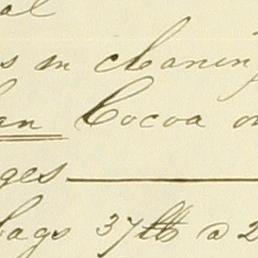 al
s in cleanin
an Cocoa o
ges
bags 37 lb a 2